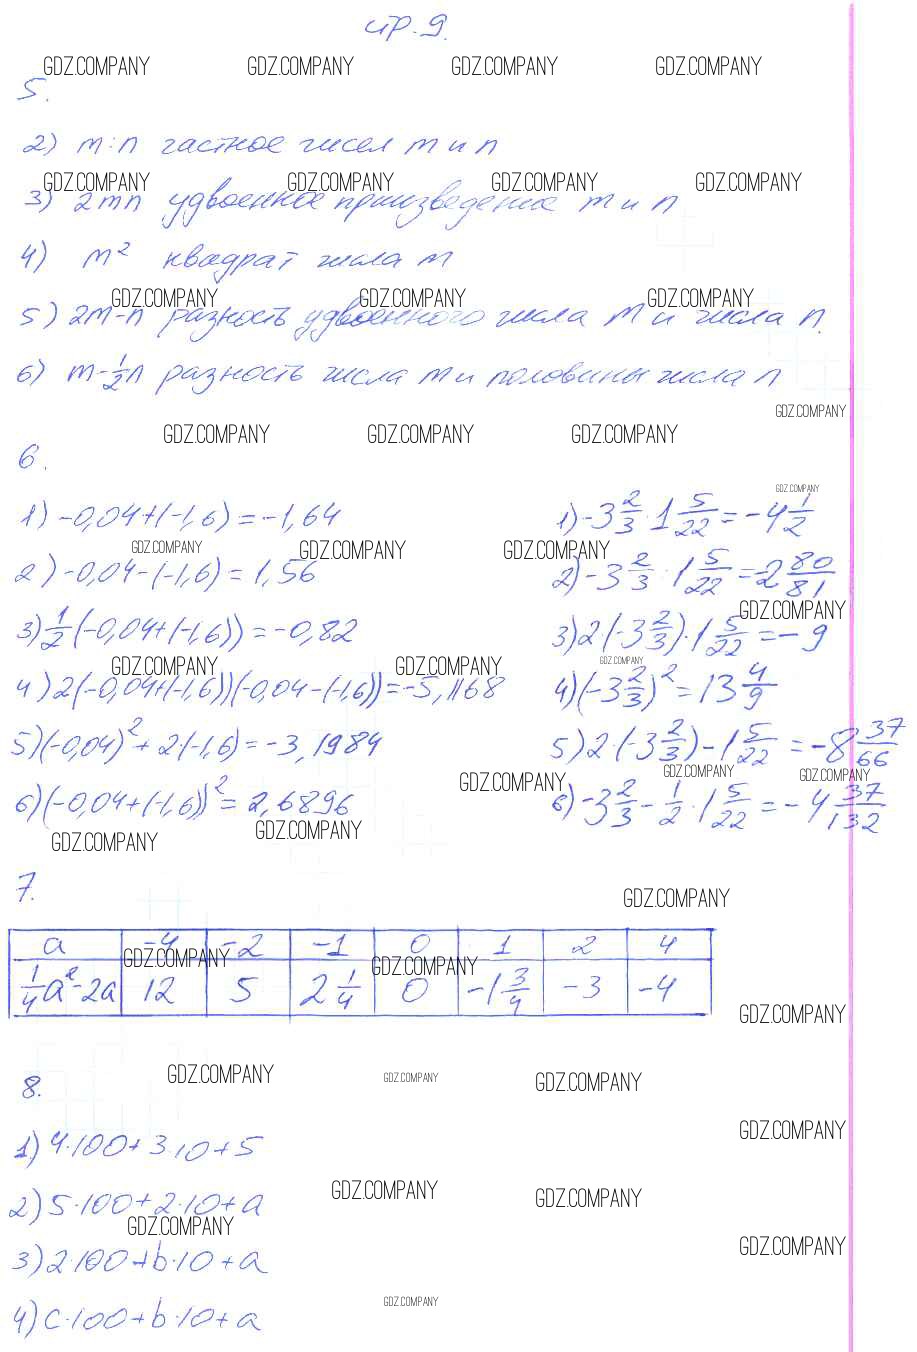 стр. 9.
GDZ.COMPANY GDZ.COMPANY GDZ.COMPANY GDZ.COMPANY
5.
2) m:n частное чисел m и n
GDZ.COMPANY GDZ.COMPANY GDZ.COMPANY GDZ.COMPANY
3) 2mn удвоенное произведение m и n
4) m² квадрат числа m
GDZ.COMPANY GDZ.COMPANY GDZ.COMPANY
5) 2m-n разность удвоенного числа m и числа n.
6) m-1/2n разность числа m и половины числа n
GDZ.COMPANY
GDZ.COMPANY GDZ.COMPANY GDZ.COMPANY
6.
GDZ.COMPANY
1) -0,04+(-1,6)=-1,64 1) -3 2/3·1 5/22=-4 1/2
GDZ.COMPANY GDZ.COMPANY GDZ.COMPANY
2) -0,04-(-1,6)=1,56 2) -3 2/3:1 5/22=-2 80/81
GDZ.COMPANY
3) 1/2(-0,04+(-1,6))=-0,82 3) 2(-3 2/3)·1 5/22=-9
GDZ.COMPANY GDZ.COMPANY GDZ.COMPANY
4) 2(-0,04+(-1,6))(-0,04-(-1,6))=-5,1168 4) (-3 2/3)²=13 4/9
5) (-0,04)²+2·(-1,6)=-3,1984 5) 2·(-3 2/3)-1 5/22=-8 37/66
GDZ.COMPANY GDZ.COMPANY GDZ.COMPANY
6) (-0,04+(-1,6))²=2,6896 6) -3 2/3-1/2·1 5/22=-4 37/132
GDZ.COMPANY GDZ.COMPANY
7.
GDZ.COMPANY
a -4 -2 -1 0 1 2 4
GDZ.COMPANY GDZ.COMPANY
1/4a²-2a 12 5 2 1/4 0 -1 3/4 -3 -4
GDZ.COMPANY
GDZ.COMPANY GDZ.COMPANY GDZ.COMPANY
8.
GDZ.COMPANY
1) 4·100+3·10+5
GDZ.COMPANY GDZ.COMPANY
2) 5·100+2·10+a
GDZ.COMPANY
GDZ.COMPANY
3) 2·100+b·10+a
GDZ.COMPANY
4) c·100+b·10+a